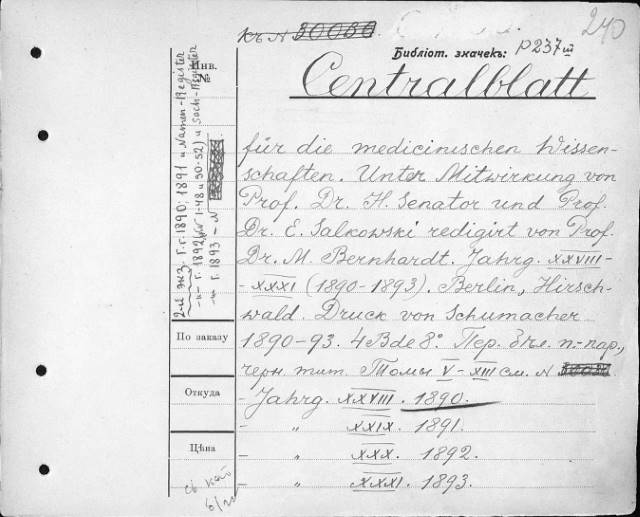 къ N 30080
240
Библіот. значекъ: P 237 ш
Centralblatt
für die medicinischen Wissen-
schaften. Unter Mitwirkung von
Prof. Dr. H. Senator und Prof.
Dr. E. Salkowski redigirt von Prof.
Dr. M. Bernhardt. Jahrg. XXVIII-
-XXXI (1890-1893). Berlin, Hirsch-
wald. Druck von Schumacher
1890-93. 4 Bde 8°. Пер. п.-пар.,
черн. тит. Томы V-XIII см. N
- Jahrg. XXVIII. 1890.
- " XXIX. 1891.
- " XXX. 1892.
- " XXXI. 1893.
Инв.
№
2-й экз. г.г. 1890; 1891 и Namen-Register
-"- г. 1892 (N 1-48 и 50-52) и Sach-Register
-"- г. 1893 - N
По заказу
Откуда
Цѣна